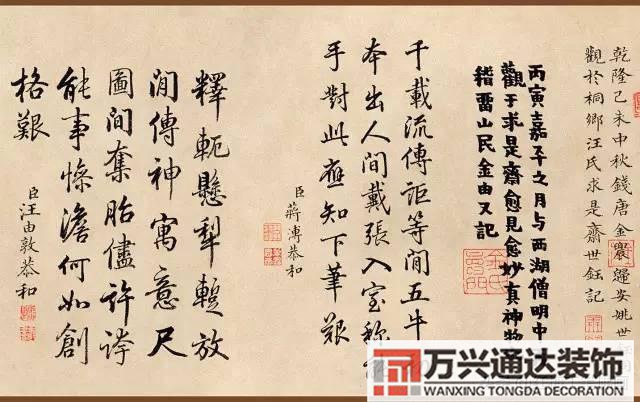 乾隆己未中秋錢唐金農歸安姚世
觀於桐鄉汪氏求是齋世鈺記
丙寅嘉平之月與西湖僧明中
觀于求是齋愈見愈妙真神物
稽畱山民金由又記
千載流傳詎等閒五牛
本出人間戴張入室稱
手對此應知下筆艱
臣蔣溥恭和
釋軛懸犁暫放
閒傳神寓意尺
圖間奪胎儘許誇
能事慘澹何如創
格艱
臣汪由敦恭和
万兴通达装饰
WANXING TONGDA DECORATION